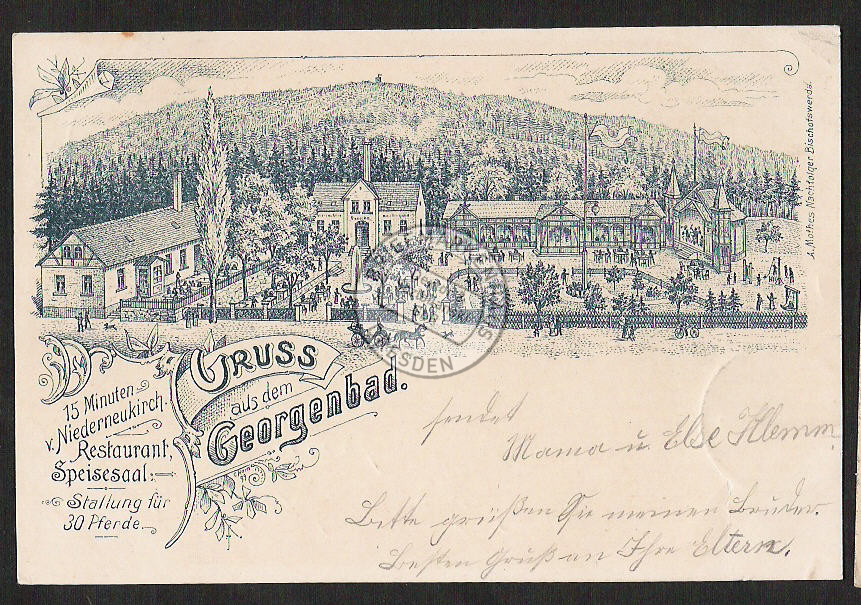 A. Mathes Nachfolger Bischofswerda.
BRIEFMARKENHAUS
DRESDEN
GRUSS
aus dem
Georgenbad.
15 Minuten
v. Niederneukirch.
Restaurant,
Speisesaal.
Stallung für
30 Pferde.
sendet
Mama u. Else Klemm.
Bitte grüßen Sie meinen Bruder.
Besten Gruß an Ihre Eltern.